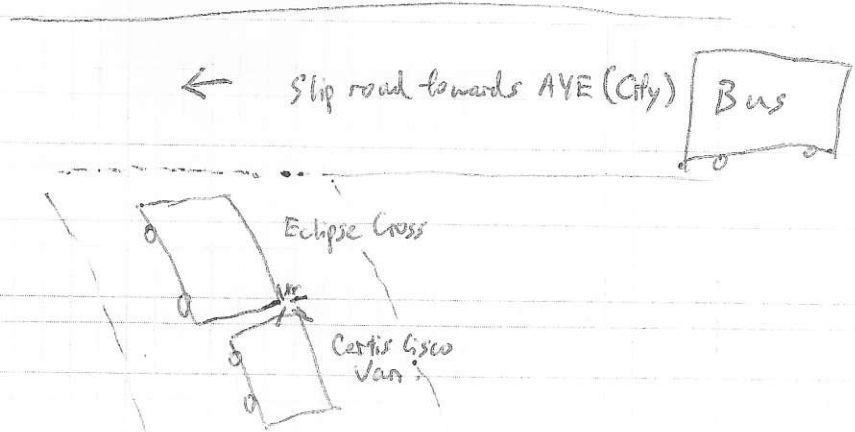 ← Slip road towards AYE (City)
Bus
Eclipse Cross
Certis Cisco
Van